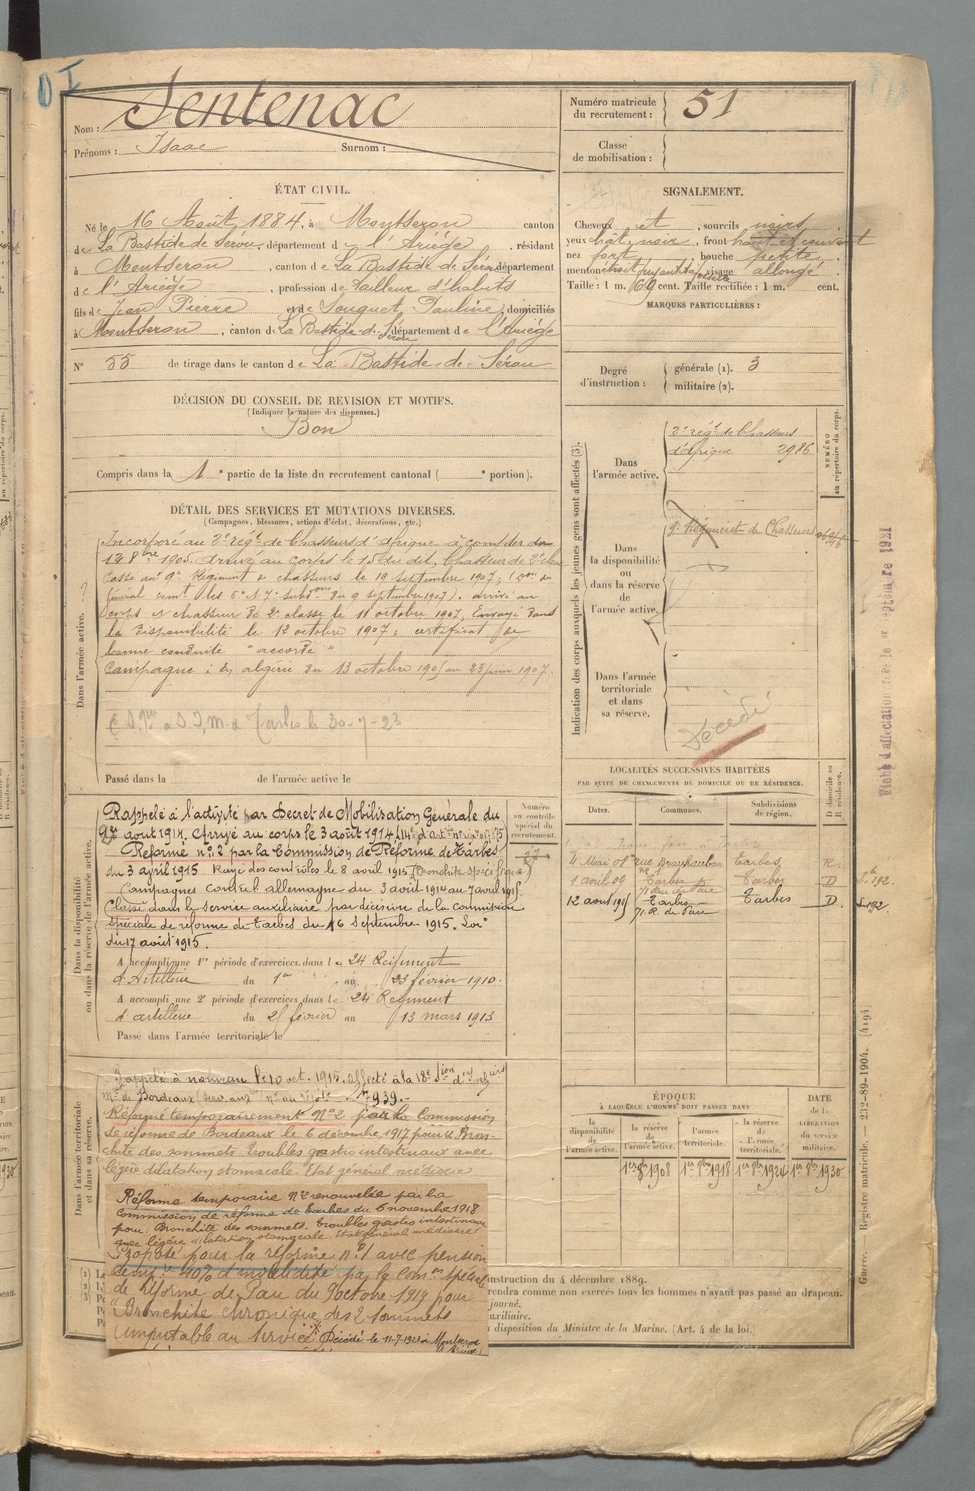 Nom : Sentenac
Prénoms : Isaac Surnom :
Numéro matricule du recrutement : 51
Classe de mobilisation :
ÉTAT CIVIL.
Né le 16 Août 1884, à Montseron canton
de La Bastide de Sérou, département de l'Ariège, résidant
à Montseron, canton de La Bastide de Sérou département
de l'Ariège, profession de tailleur d'habits
fils de Jean Pierre et de Souquet, Pauline, domiciliés
à Montseron, canton de La Bastide-de-Sérou département de l'Ariège
N° 55 de tirage dans le canton de La Bastide-de-Sérou
SIGNALEMENT.
Cheveux et, sourcils noirs
yeux chât. noir, front
nez fort bouche petite
menton visage allongé
Taille : 1 m. 69 cent. Taille rectifiée : 1 m. cent.
MARQUES PARTICULIÈRES :
DÉCISION DU CONSEIL DE REVISION ET MOTIFS.
(Indiquer la nature des dispenses.)
Bon
Compris dans la 1e partie de la liste du recrutement cantonal ( e portion).
Degré d'instruction : générale (1). 3
militaire (2).
DÉTAIL DES SERVICES ET MUTATIONS DIVERSES.
(Campagnes, blessures, actions d'éclat, décorations, etc.)
Dans l'armée active.
Incorporé au 2e régt de Chasseurs d'Afrique à compter du
8bre 1905. Arrivé au corps le 15 du dit, Chasseur de 2e classe
Passé au 9e Régiment de chasseurs le 19 septembre 1907,
du 9 septembre 1907). arrivé au
corps et chasseur de 2e classe le 11 octobre 1907, Envoyé dans
la disponibilité le 12 octobre 1907 ; certificat de
bonne conduite "accordé"
Campagne : en algérie du 13 octobre 1905 au 23 juin 1907.
Tarbes le 30-7-23
Passé dans la de l'armée active le
Indication des corps auxquels les jeunes gens sont affectés (3).
NUMÉRO au répertoire du corps.
Dans l'armée active.
2e régt de Chasseurs
d'Afrique 2986
Dans la disponibilité ou dans la réserve de l'armée active.
9e Régiment de Chasseurs
Dans l'armée territoriale et dans sa réserve.
Décédé
Fiche d'affectation
Dans la disponibilité ou dans la réserve de l'armée active.
Numéro au contrôle spécial du recrutement.
Rappelé à l'activité par Décret de Mobilisation Générale du
août 1914. Arrivé au corps le 3 août 1914
Réformé n° 2 par la Commission de Réforme de Tarbes
du 3 avril 1915 Rayé des contrôles le 8 avril 1915 (Bronchite spécifique)
Campagnes contre l'allemagne du 3 août 1914 au 7 avril 1915
Classé dans le service auxiliaire par décision de la Commission
Spéciale de réforme de Tarbes du 16 Septembre 1915. Loi
du 17 août 1915.
A accompli une 1re période d'exercices dans le 24 Régiment
d'Artillerie du 1er au 23 février 1910.
A accompli une 2e période d'exercices dans le 24 Régiment
d'artillerie du février au 13 mars 1913
Passé dans l'armée territoriale le
LOCALITÉS SUCCESSIVES HABITÉES
PAR SUITE DE CHANGEMENTS DE DOMICILE OU DE RÉSIDENCE.
Dates. Communes. Subdivisions de région. D domicile ou R résidence.
Mai 08 rue Brauhauban Tarbes R.
1 avril 09 Tarbes Tarbes D
12 août 1915 Tarbes Tarbes D.
71. R. de Pau
Dans l'armée territoriale et dans sa réserve.
Rappelé à nouveau le 10 oct. 1915. affecté à la 18e Sion d'infirs
mres de Bordeaux 7939.-
Réformé temporairement N° 2 par la Commission
de réforme de Bordeaux le 6 décembre 1917 pour Bron-
chite des sommets troubles gastro intestinaux avec
légère dilatation stomacale. Etat général médiocre
Réforme temporaire N° 2 renouvelée par la
Commission de réforme de Tarbes du 6 novembre 1918
pour : Bronchite des sommets. troubles gastro intestinaux
avec légère dilatation stomacale. Etat général médiocre
Proposé pour la réforme n° 1 avec pension
40% d'invalidité par la Comon spéciale
de Réforme de Pau du 9 octobre 1919 pour
"Bronchite chronique des 2 sommets
imputable au service" Décédé le 11-7-1923 à Montseron
ÉPOQUE
À LAQUELLE L'HOMME DOIT PASSER DANS
la disponibilité de l'armée active. la réserve de l'armée active. l'armée territoriale. la réserve de l'armée territoriale. DATE de la LIBÉRATION du service militaire.
1er 8bre 1908 1er 8bre 1918 1er 8bre 1924 1er 8bre 1930
instruction du 4 décembre 1889.
rendra comme non exercés tous les hommes n'ayant pas passé au drapeau.
journé.
auxiliaire.
disposition du Ministre de la Marine. (Art. 4 de la loi.)
Guerre. — Registre matricule. — 232-89-1904. (4194